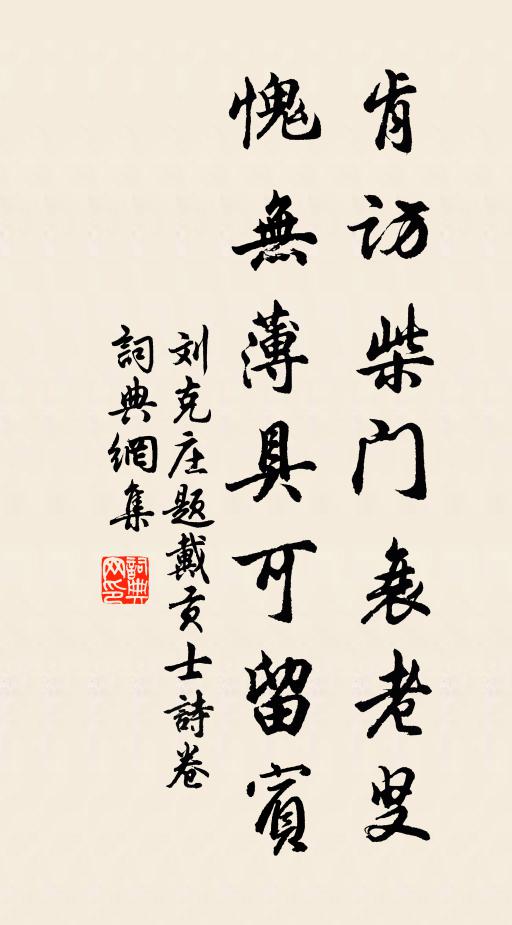 肯访柴门衰老叟
愧無薄具可留賓
刘克庄题戴贡士詩卷
詞典網集
詞典网印